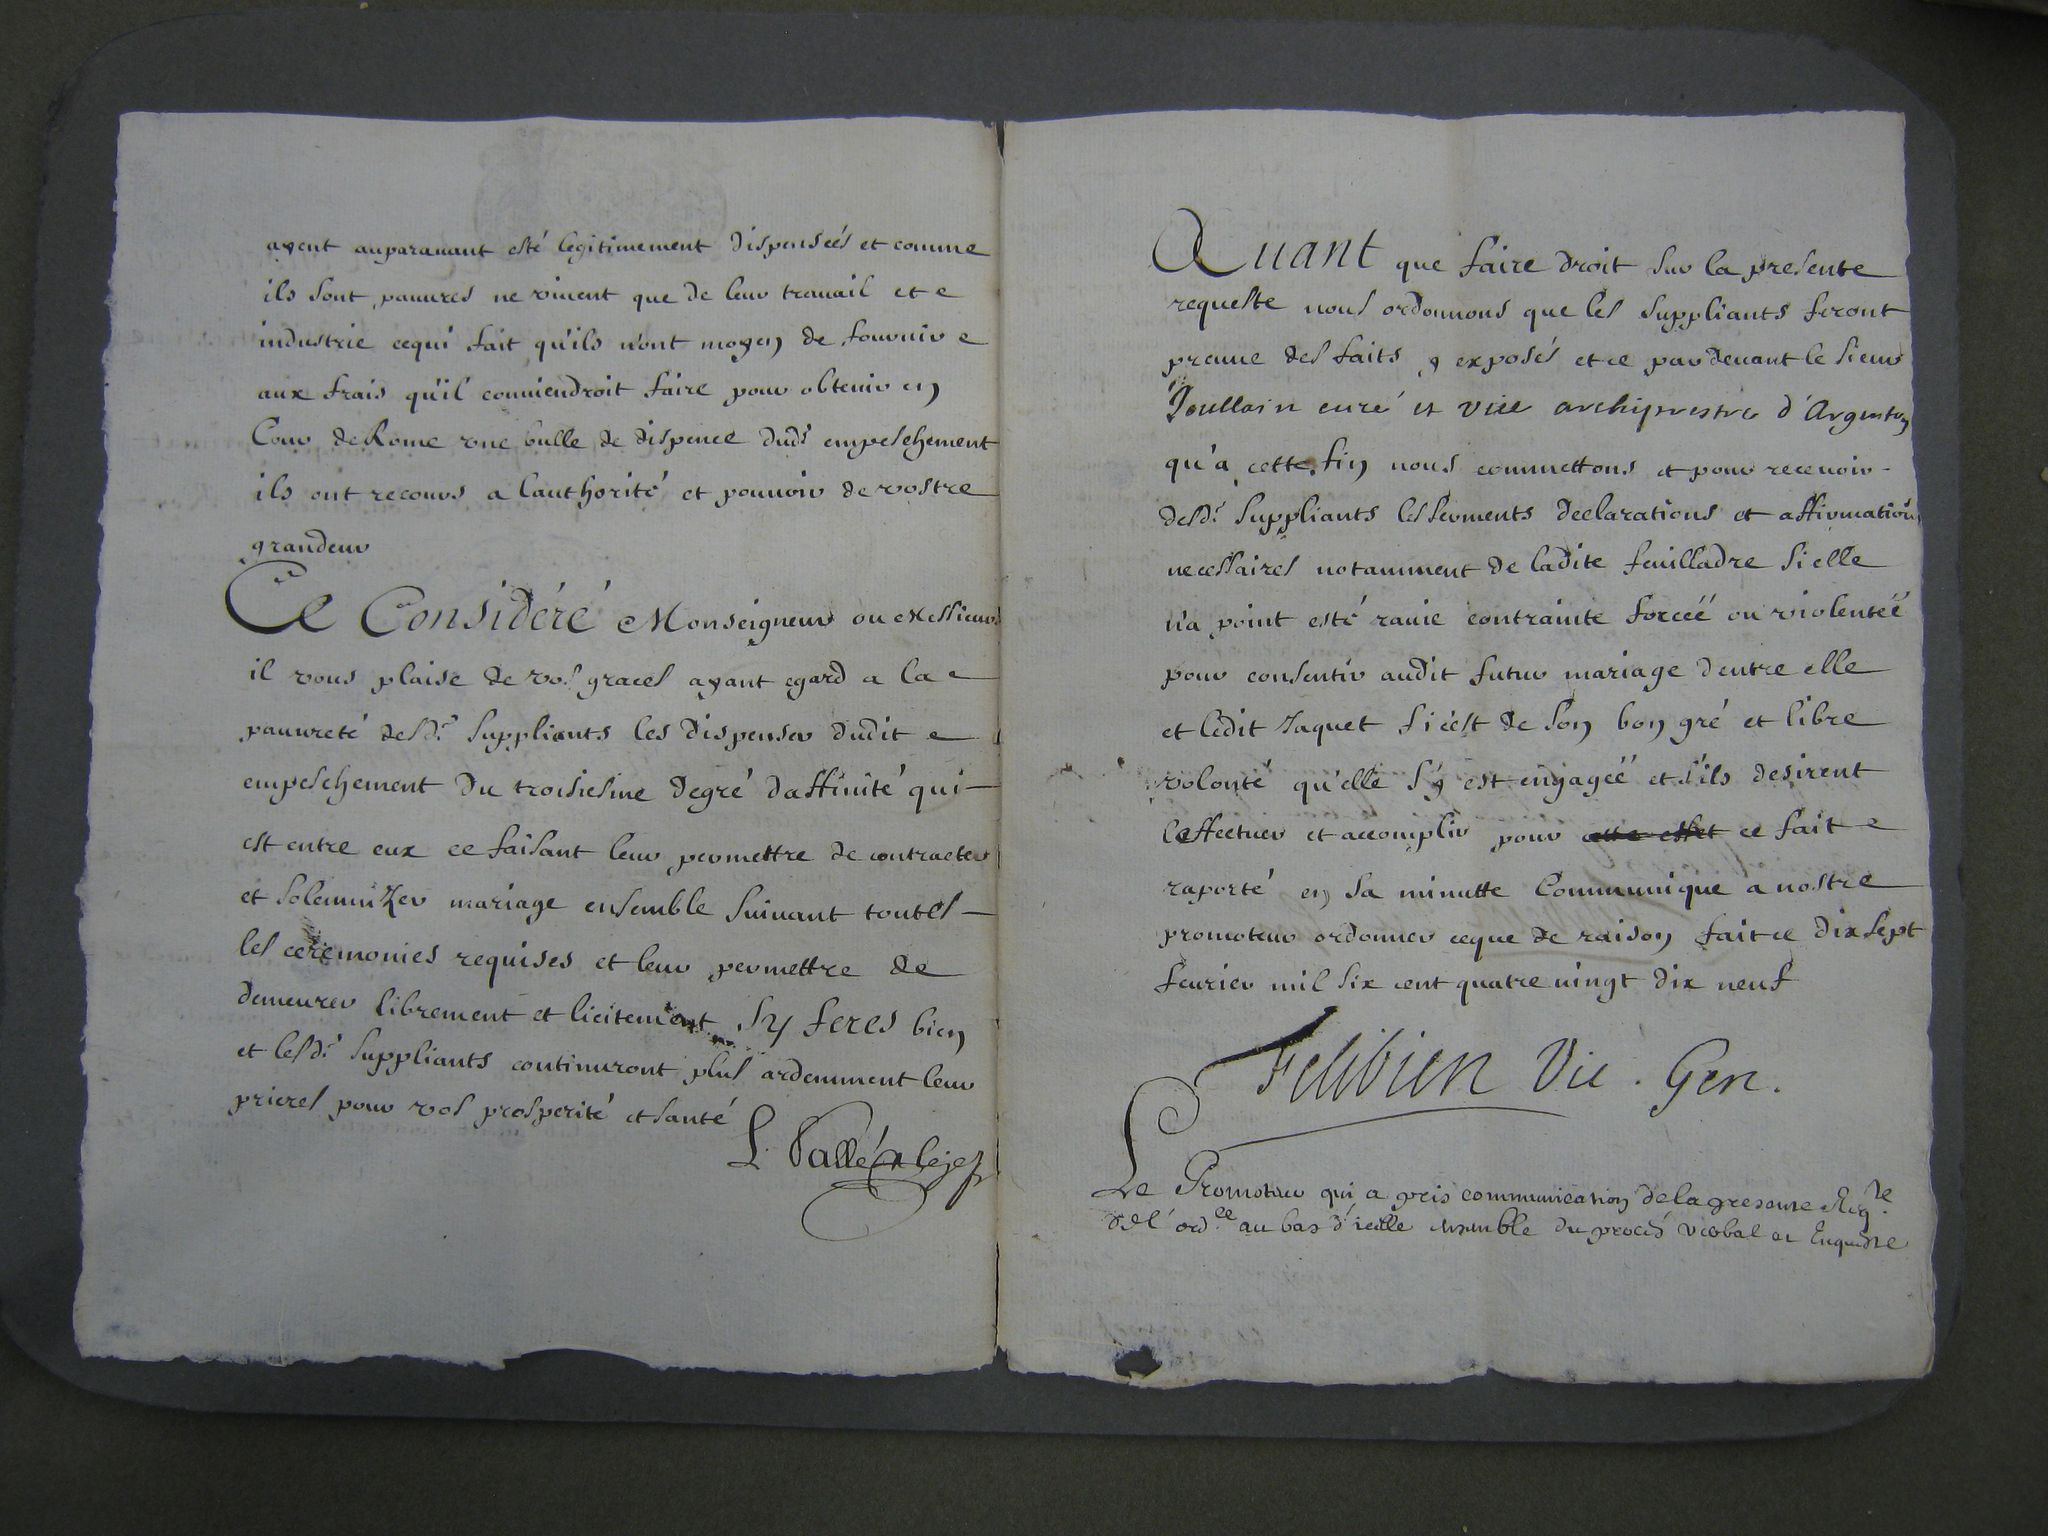 ayent auparauant esté legitimement dispenseés et comme
ils sont pauures ne viuent que de leur trauail et
industrie cequi fait qu'ils n'ont moyen de fournir
aux frais qu'il conuiendroit faire pour obtenir en
Cour de Rome vne bulle de dispence dudt empeschement
ils ont recours a lauthorité et pouuoir de vostre
grandeur
Ce Considéré Monseigneur ou Messieurs
il vous plaise de vos graces ayant egard a la
pauureté desdts suppliants les dispenser dudit
empeschement du troisiesme degré daffinité qui
est entre eux ce faisant leur permettre de contracter
et solemnizer mariage ensemble suiuant toutes
les ceremonies requises et leur permettre de
demeurer librement et licitement sy feres bien
et lesdts suppliants continuront plus ardemment leur
prieres pour vos prosperité et santé
L. Vallé
Auant que faire droit sur la presente
requeste nous ordonnons que les suppliants feront
preuue des faits y exposés et ce pardeuant le sieur
Poullain curé et vice archiprestre d'Argenton
qu'a cette fin nous commettons et pour receuoir
desdts suppliants les serments declarations et affirmations
necessaires notamment de ladite feuilladre si elle
n'a point esté rauie contrainte forceé ou violenteé
pour consentir audit futur mariage d'entre elle
et ledit Jaquet si c'est de son bon gré et libre
volonté qu'elle s'y est engageé et s'ils desirent
leffectuer et accomplir pour cette effet ce fait
raporté en sa minutte Communique a nostre
promoteur ordonner ceque de raison fait ce dix sept
feurier mil six cent quatre uingt dix neuf
Felibien Vic. Gen.
Le Promoteur qui a pris communication de la presente Reqte
& de l'ordce au bas d'icelle ensemble du procés verbal et Enqueste